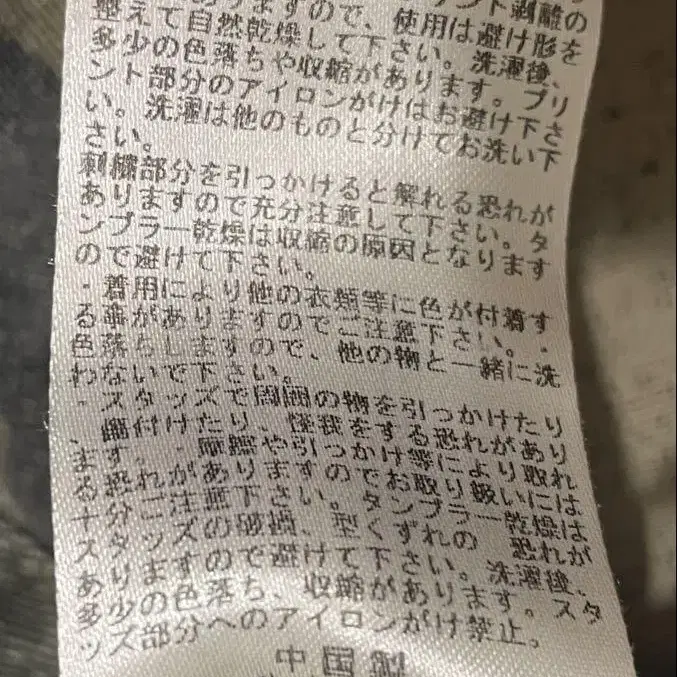 ありますので、使用は避け形を
整えて自然乾燥して下さい。洗濯後、
多少の色落ちや収縮があります。プリ
ント部分のアイロンがけはお避け下さ
い。洗濯は他のものと分けてお洗い下
さい。
刺繍部分を引っかけると解れる恐れが
ありますので充分注意して下さい。タ
ンブラー乾燥は収縮の原因となります
ので避けて下さい。
・着用により他の衣類等に色が付着す
る事がありますのでご注意下さい。・
色落ちしますので、他の物と一緒に洗
わないで下さい。
・スタッズで周囲の物を引っかけたり
、傷付けたり、怪我をする恐れがあり
ます。・摩擦や引っかけ等により取れ
る恐れがありますのでお取り扱いには
十分ご注意下さい。タンブラー乾燥は
スタッズの破損、型くずれの 恐れが
ありますので避けて下さい。洗濯後、
多少の色落ち、収縮があります。スタ
ッズ部分へのアイロンがけ禁止。
中国製